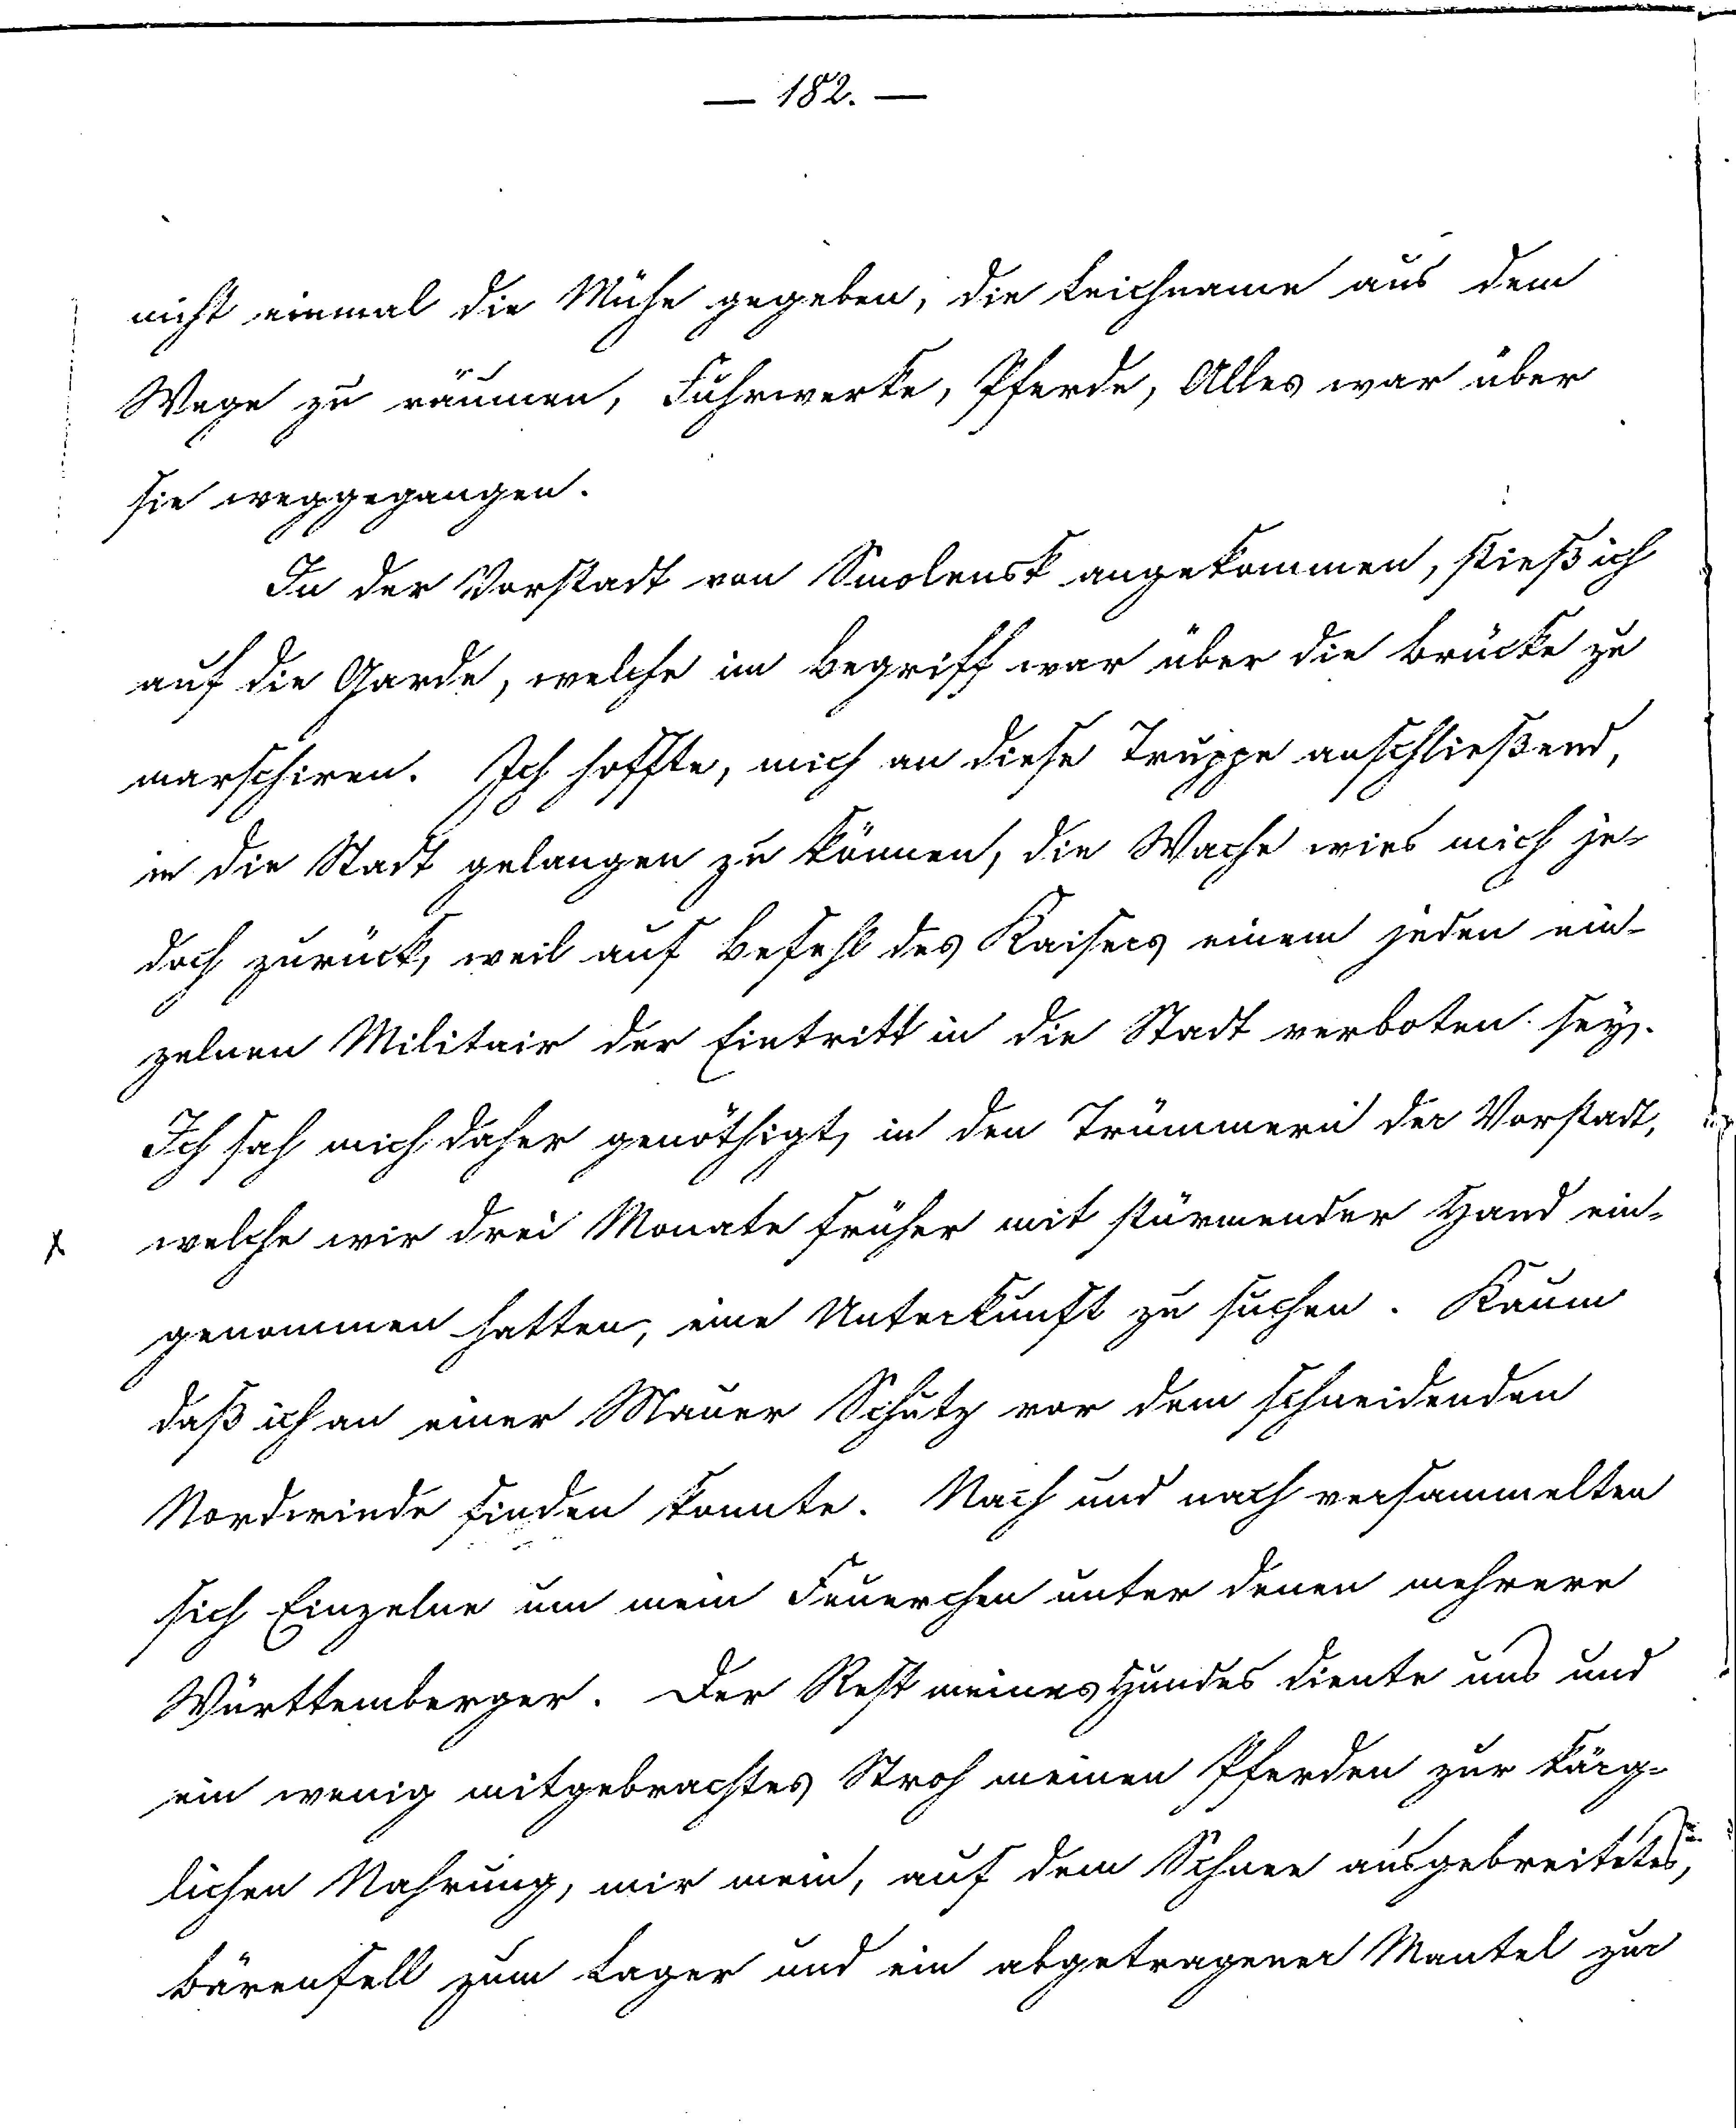 — 182. —
nicht einmal die Mühe gegeben, die Leichname aus dem
Wege zu räumen, Fuhrwerke, Pferde, Alles war über
sie weggegangen.
In der Vorstadt von Smolensk angekommen, stieß ich
auf die Garde, welche im Begriff war über die Brücke zu
marschiren. Ich hoffte, mich an diese Truppe anschließend,
in die Stadt gelangen zu können, die Wache wies mich je-
doch zurück, weil auf Befehl des Kaisers einem jeden ein-
zelnen Militair der Eintritt in die Stadt verboten sey.
Ich sah mich daher genöthigt, in den Trümmern der Vorstadt,
welche wir drei Monate früher mit stürmender Hand ein-
genommen hatten, eine Unterkunft zu suchen. Kaum
daß ich an einer Mauer Schutz vor dem schneidenden
Nordwinde finden konnte. Nach und nach versammelten
sich Einzelne um mein Feuerchen unter denen mehrere
Württemberger. Der Rest meines Hundes diente uns und
ein wenig mitgebrachtes Stroh meinen Pferden zur kärg-
lichen Nahrung, mir mein, auf dem Schnee ausgebreitetes,
Bärenfell zum Lager und ein abgetragener Mantel zur